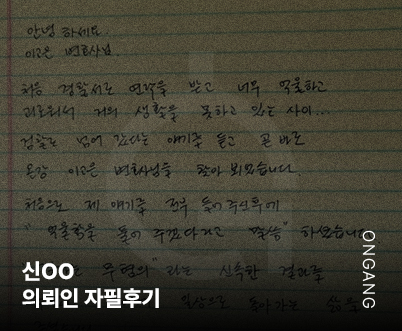 안녕 하세요.
이고은 변호사님.
처음 경찰서로 연락을 받고 너무 억울하고
괴로워서 거의 생활을 못하고 있는 사이...
검찰로 넘어 갔다는 얘기를 듣고 곧 바로
온강 이고은 변호사님을 찾아 뵈었습니다.
처음으로 제 얘기를 전부 들어 주신 후에
" 억울함을 풀어 주겠다 라고 말씀" 하셨습니다
무혐의" 라는 신속한 결과로
일상으로 돌아가는
ONGANG
신OO
의뢰인 자필후기